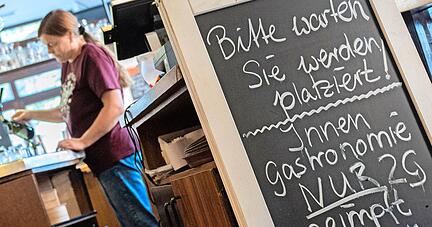 Bitte warten
Sie werden
platziert!
Innen
gastronomie
NUR 2G
geimpft